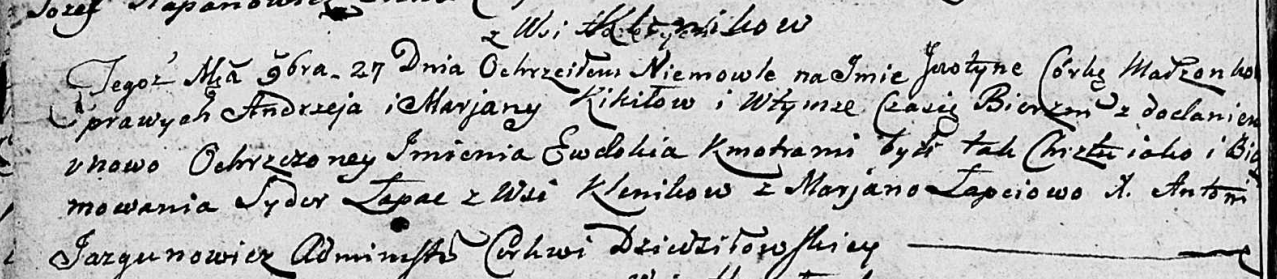 Jozef
z Wsi Klenikow
Tegoż Mca 9bra 27 Dnia Ochrzciłem Niemowle na Imie Justyne Córkę Małżonkow
prawych Andrzeja i Marjany Kikiłow i Wtymze Czasie Bierzm z dodaniem
unowo Ochrzczoney Imienia Ewdokia Kmotrami byli tak Chrztu iako i Bie
mowania Syder Łapac z Wsi Klenikow z Marjano Łapciowo X. Antoni
Jazgunowicz Administ Cerkwi Dziedziłowskiey